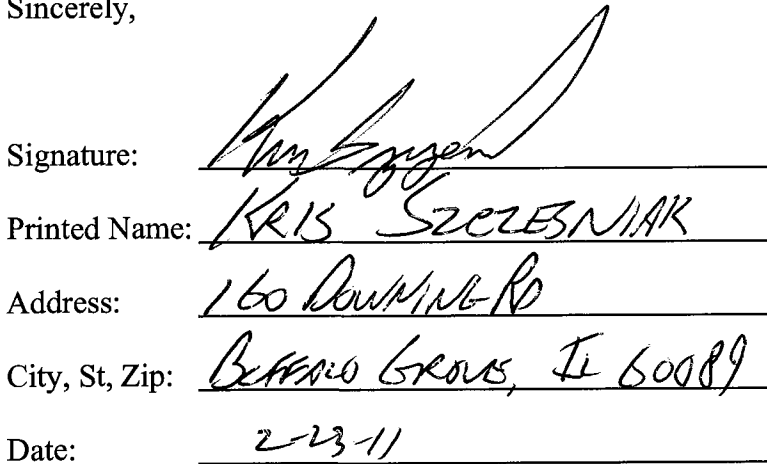 Sincerely,
Signature:
Printed Name: KRIS SZCZESNIAK
Address: 160 DOWNING RD
City, St, Zip: BUFFALO GROVE, IL 60089
Date: 2-23-11